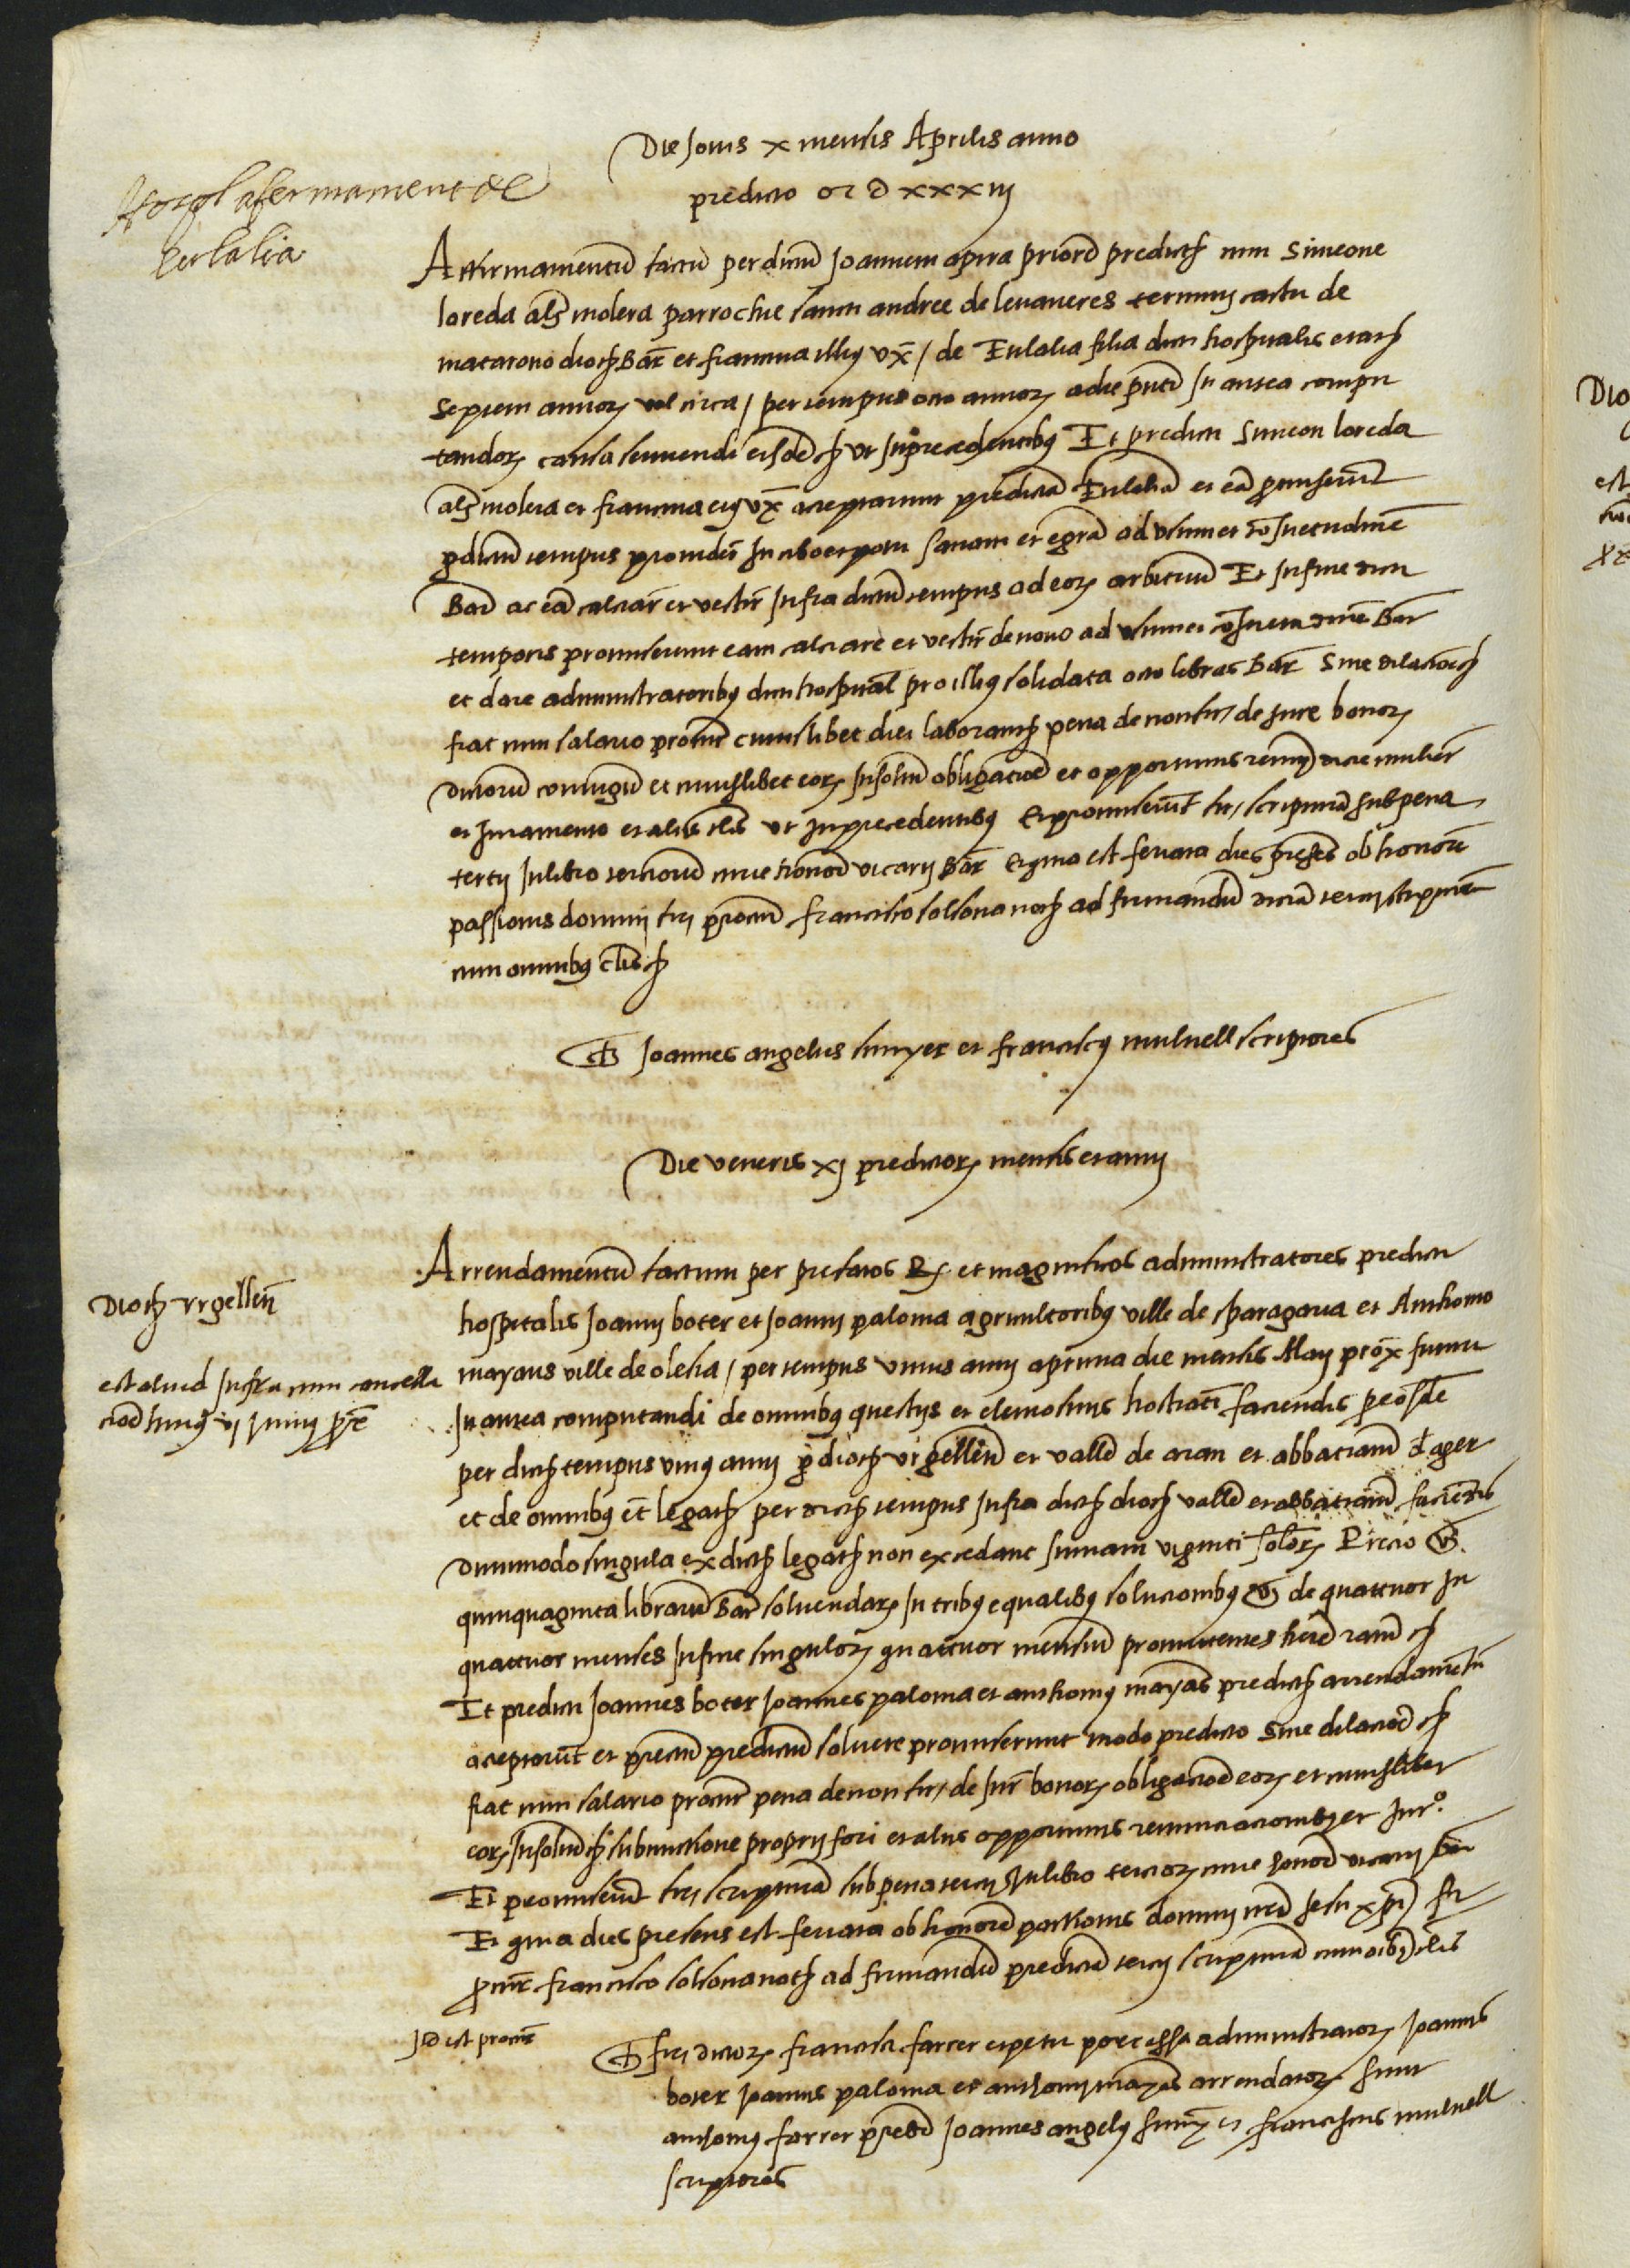 Die Jovis x mensis Aprilis anno
predicto M D xxxiij
afermament de
Eulalia
Affirmamentum factum per dictum Joannem apira priorem predictum cum Simeone
loreda als molera parrochie sancti andree de levaneres termini castri de
matarono dioc Bar et francina illius ux / de Eulalia filia dicti hospitalis etatis
septem annorum vel circa / per tempus octo annorum a die pnti In antea compu
tandorum causa serviendi eisdem etc ut In precedentibus Et predicti Simeon loreda
als molera et francina eius ux aceptarunt predictam Eulaliam et eam promiserunt
per dictum tempus providere In cibo et potu sanam et egram ad usum et consuetudinem
Bar ac eam calciare et vestire Infra dictum tempus ad eorum arbitrium Et In fine dicti
temporis promiserunt eam calciare et vestire de novo ad usum et consuetudinem Bar
et dare administratoribus dicti hospitalis pro illius solidata octo libras Bar Sine dilacione etc
fiat cum salario procur cuiuslibet diei laborantis pena de non fir / de Jure bonorum
dictorum coniugum et cuiuslibet eorum Insolidum obligacione et opportunis renun dicte mulieris
et Juramento et aliis clis ut In precedentibus Et promiserunt fir / scripturam sub pena
tertii In libro terciorum curie honor vicarii Bar Et quia est feriata dies presens ob honorem
passionis domini fir procur francisco solsona not ad firmandum dictam tercii scripturam
cum omnibus clis etc
Ts Joannes angelus sunyer et franciscus mulnell scriptores
Die veneris xj predictorum mensis et anni
Dioc Urgellen
est aliud Infra cum cancella
cione huius vj Junii
Arrendamentum factum per prefatos R et magnificos administratores predicti
hospitalis Joanni boter et Joanni paloma agricultoribus ville de sparagaria et Anthonio
mayans ville de olesia / per tempus unius anni a prima die mensis Maii prox futuri
In antea computandi de omnibus questiis et elemosinis hostiatim faciendis per eosdem
per dictum tempus unius anni per dioc urgellen et vallem de aran et abbaciam d ager
et de omnibus et legatis per dictum tempus Infra dictum dioc vallem et abbaciam faciendis
dummodo singula ex dictis legatis non excedant summam viginti solidorum Precio
quinquaginta librarum Bar solvendarum In tribus equalibus solucionibus de quattuor In
quattuor menses In fine singulorum quattuor mensium promittentes ratum etc
Et predicti Joannes boter Joannes paloma et anthonius mayans predictum arrendamentum
aceptarunt et precium predictum solvere promiserunt modo predicto Sine dilacione etc
fiat cum salario procur pena de non fir / de Jure bonorum obligacione eorum et cuiuslibet
eorum Insolidum etc submissione proprii fori et aliis opportunis renunciacionibus et Juro.
Et promiserunt fir scripturam sub pena tercii In libro terciorum curie honor vicarii Bar
Et quia dies presens est feriata ob honorem passionis domini nri Jesu xpi fir
procur francisco solsona not ad firmandum predictam tercii scripturam cum oibus clis
Ts fir dictorum francisci farrer et petri administratorum Joannis
boter Joannis paloma et anthonii mayans arrendatorum sunt
anthonius farrer Joannes angelus suny et franciscus mulnell
scriptores